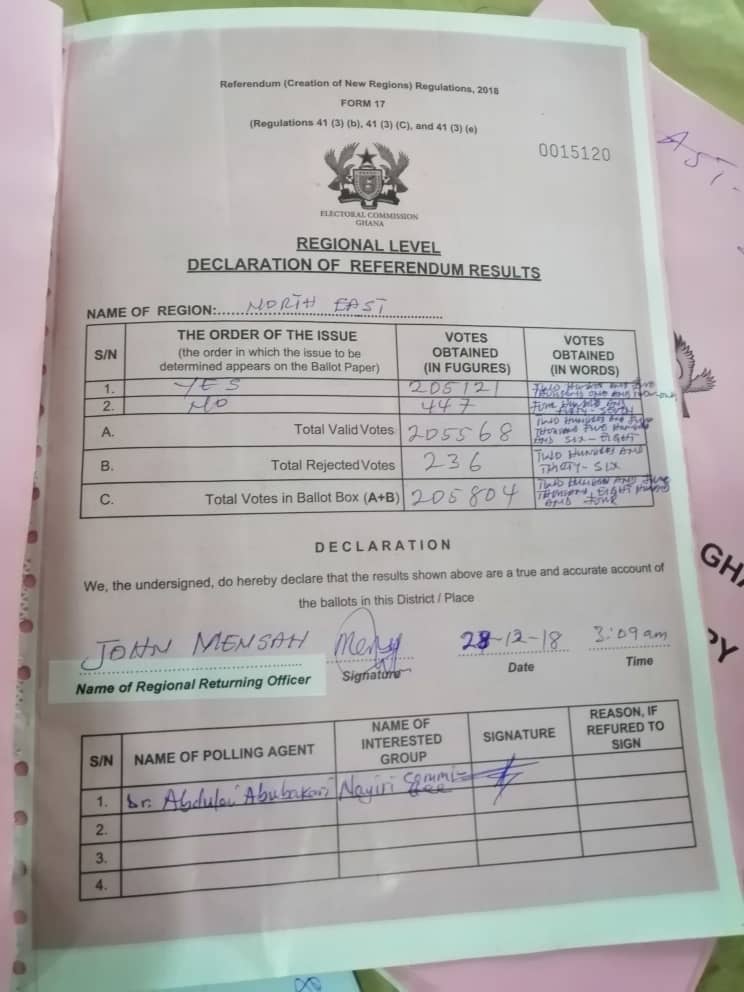 Referendum (Creation of New Regions) Regulations, 2018
FORM 17
(Regulations 41 (3) (b), 41 (3) (C), and 41 (3) (e)
0015120
ELECTORAL COMMISSION
GHANA
REGIONAL LEVEL
DECLARATION OF REFERENDUM RESULTS
NAME OF REGION: NORTH EAST
S/N THE ORDER OF THE ISSUE (the order in which the issue to be determined appears on the Ballot Paper) VOTES OBTAINED (IN FUGURES) VOTES OBTAINED (IN WORDS)
1. YES 205121
2. NO 447
A. Total Valid Votes 205568
B. Total Rejected Votes 236 TWO HUNDRED AND THIRTY-SIX
C. Total Votes in Ballot Box (A+B) 205804
DECLARATION
We, the undersigned, do hereby declare that the results shown above are a true and accurate account of
the ballots in this District / Place
JOHN MENSAH 28-12-18 3:09 am
Name of Regional Returning Officer Signature Date Time
S/N NAME OF POLLING AGENT NAME OF INTERESTED GROUP SIGNATURE REASON, IF REFURED TO SIGN
1. Dr. Abdulai Abubakari Nayiri Committee
2.
3.
4.
AST-
GHA
PY